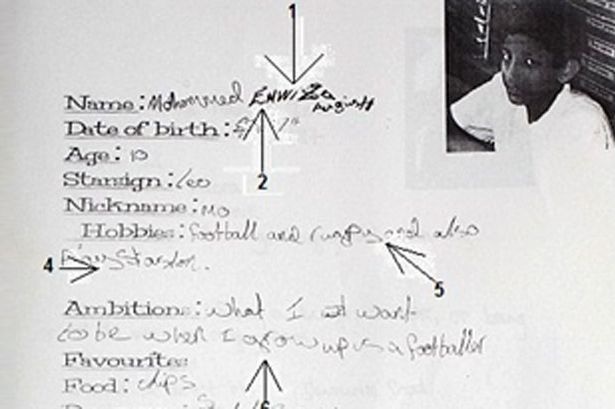 1
Name: Mohammed EMWIZa
August
Date of birth:
Age: 10
2
Starsign: Leo
Nickname: MO
Hobbies: football and also
4
5
Ambition: what I want
to be when I grow up is a footballer
Favourite:
Food: chips
6